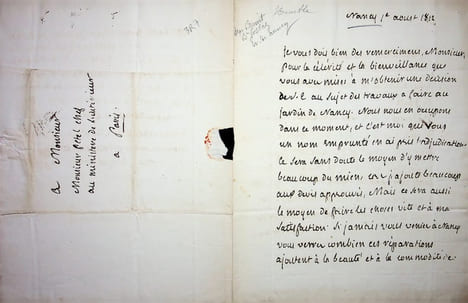 387
a Monsieur
Monsieur Petel chef
au ministère de l'intérieur
a Paris.
Nancy 1er aoust 1812
Je vous dois bien des remerciemens, Monsieur,
pour la célérité et la bienveillance que
vous avez mises à m'obtenir une décision
de S. E au sujet des travaux a faire au
jardin de Nancy. Nous nous en occupons
dans ce moment, et c'est moi qui sous
un nom emprunté en ai pris l'adjudication
le sera sans doute le moyen d'y mettre
beaucoup du mien, car j'ajoute beaucoup
aux devis approuvés, Mais ce sera aussi
le moyen de faire les choses vite et à ma
satisfaction. Si jamais vous venez à Nancy
vous verrez combien ces réparations
ajoutent à la beauté et à la commodité de